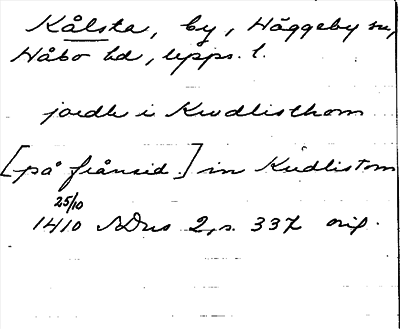 Kålsta, by, Häggeby sn,
Håbo hd, Upps. l.
jordh i Kwdlisthom
[på frånsid.] in Kudlistom
25/10
1410 SDns 2, s. 337 orig.